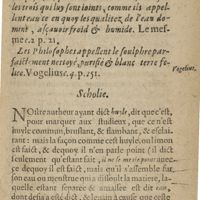 les trois qui luy sont ioints, comme ils appel-
lent eau ce en quoy les qualitez de l'eau do-
minent, asçauoir froid & humide. Le mes-
me. 2. p. 21.
Les Philosophes appellent le soulphre par-
faictement nettoyé, purifié & blanc terre fe-
lice. Vogeliuse. 4. p. 251.
Vogelius.
Scholie.
Nostre autheur ayant dict huyle, dit que c'est,
pour marquer aux studieux, que c'est un
huyle commun, bruslant, & flambant, & escla-
rant: mais la commune huyle est
faict, & dequoy il en parle point (il dict
seulement qu'est fait, il ne se marie point auec
ce dequoy il est faict, mais qu'il s'assemble
son eau ou menstrue quis a dissoult la matiere, la-
quelle estant separee & amassee est dit eau,
dont desia a esté dict, & le uin à cause que ceste